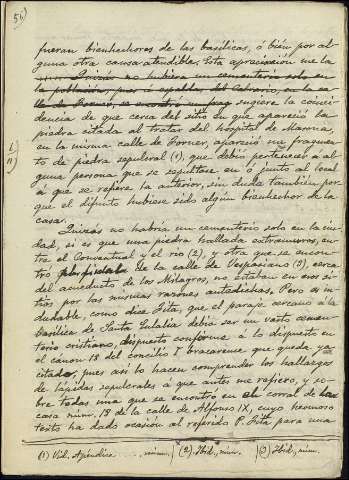 51)
fueran bienhechores de las basílicas, ó bien por al-
guna otra causa atendible. Esta apreciacion me la
sugiere la coinci-
dencia de que cerca del sitio en que apareció la
piedra citada al tratar del hospital de Masona,
en la misma calle de Forner, apareció un fragmen-
to de piedra sepulcral (1), que debió pertenecer á al-
guna persona que se sepultase en ó junto al local
á que se refiere la anterior, sin duda tambien por-
que el difunto hubiese sido algun bienhechor de la
casa.
Quizás no habría un cementerio solo en la ciu-
dad, si es que una piedra hallada extramuros, en-
tre el Conventual y el rio (2), y otra que se encon-
tró de la calle de Vespasiano (3), cerca
del acueducto de los Milagros, no estaban en esos si-
tios por las mismas razones antedichas. Pero es in-
dudable, como dice Fita, que el paraje cercano á la
basílica de Santa Eulalia debía ser un vasto cemen-
terio cristiano, dispuesto conforme á lo dispuesto en
el cánon 18 del concilio I bracarense que queda ya
citado, pues así lo hacen comprender los hallazgos
de lápidas sepulcrales á que antes me refiero, y so-
bre todos una que se encontró en el corral de la
casa núm. 18 de la calle de Alfonso IX, cuyo hermoso
texto ha dado ocasion al referido P. Fita para una
(1) Vid. Apéndice ..... núm. (2) Ibid., núm. (3) Ibid., núm.